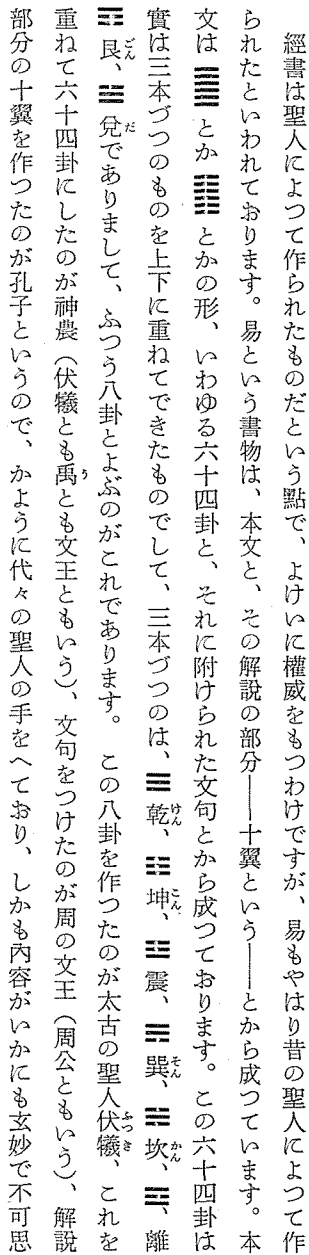 經書は聖人によつて作られたものだという點で、よけいに權威をもつわけですが、易もやはり昔の聖人によつて作
られたといわれております。易という書物は、本文と、その解說の部分――十翼という――とから成つています。本
文は䷀とか䷁とかの形、いわゆる六十四卦と、それに附けられた文句とから成つております。この六十四卦は
實は三本づつのものを上下に重ねてできたものでして、三本づつのは、☰乾けん、☷坤こん、☳震、☴巽そん、☵坎かん、☲、離
☶艮ごん、☱兌だでありまして、ふつう八卦とよぶのがこれであります。この八卦を作つたのが太古の聖人伏犧ふつき、これを
重ねて六十四卦にしたのが神農（伏犧とも禹うとも文王ともいう）、文句をつけたのが周の文王（周公ともいう）、解說
部分の十翼を作つたのが孔子というので、かように代々の聖人の手をへており、しかも內容がいかにも玄妙で不可思